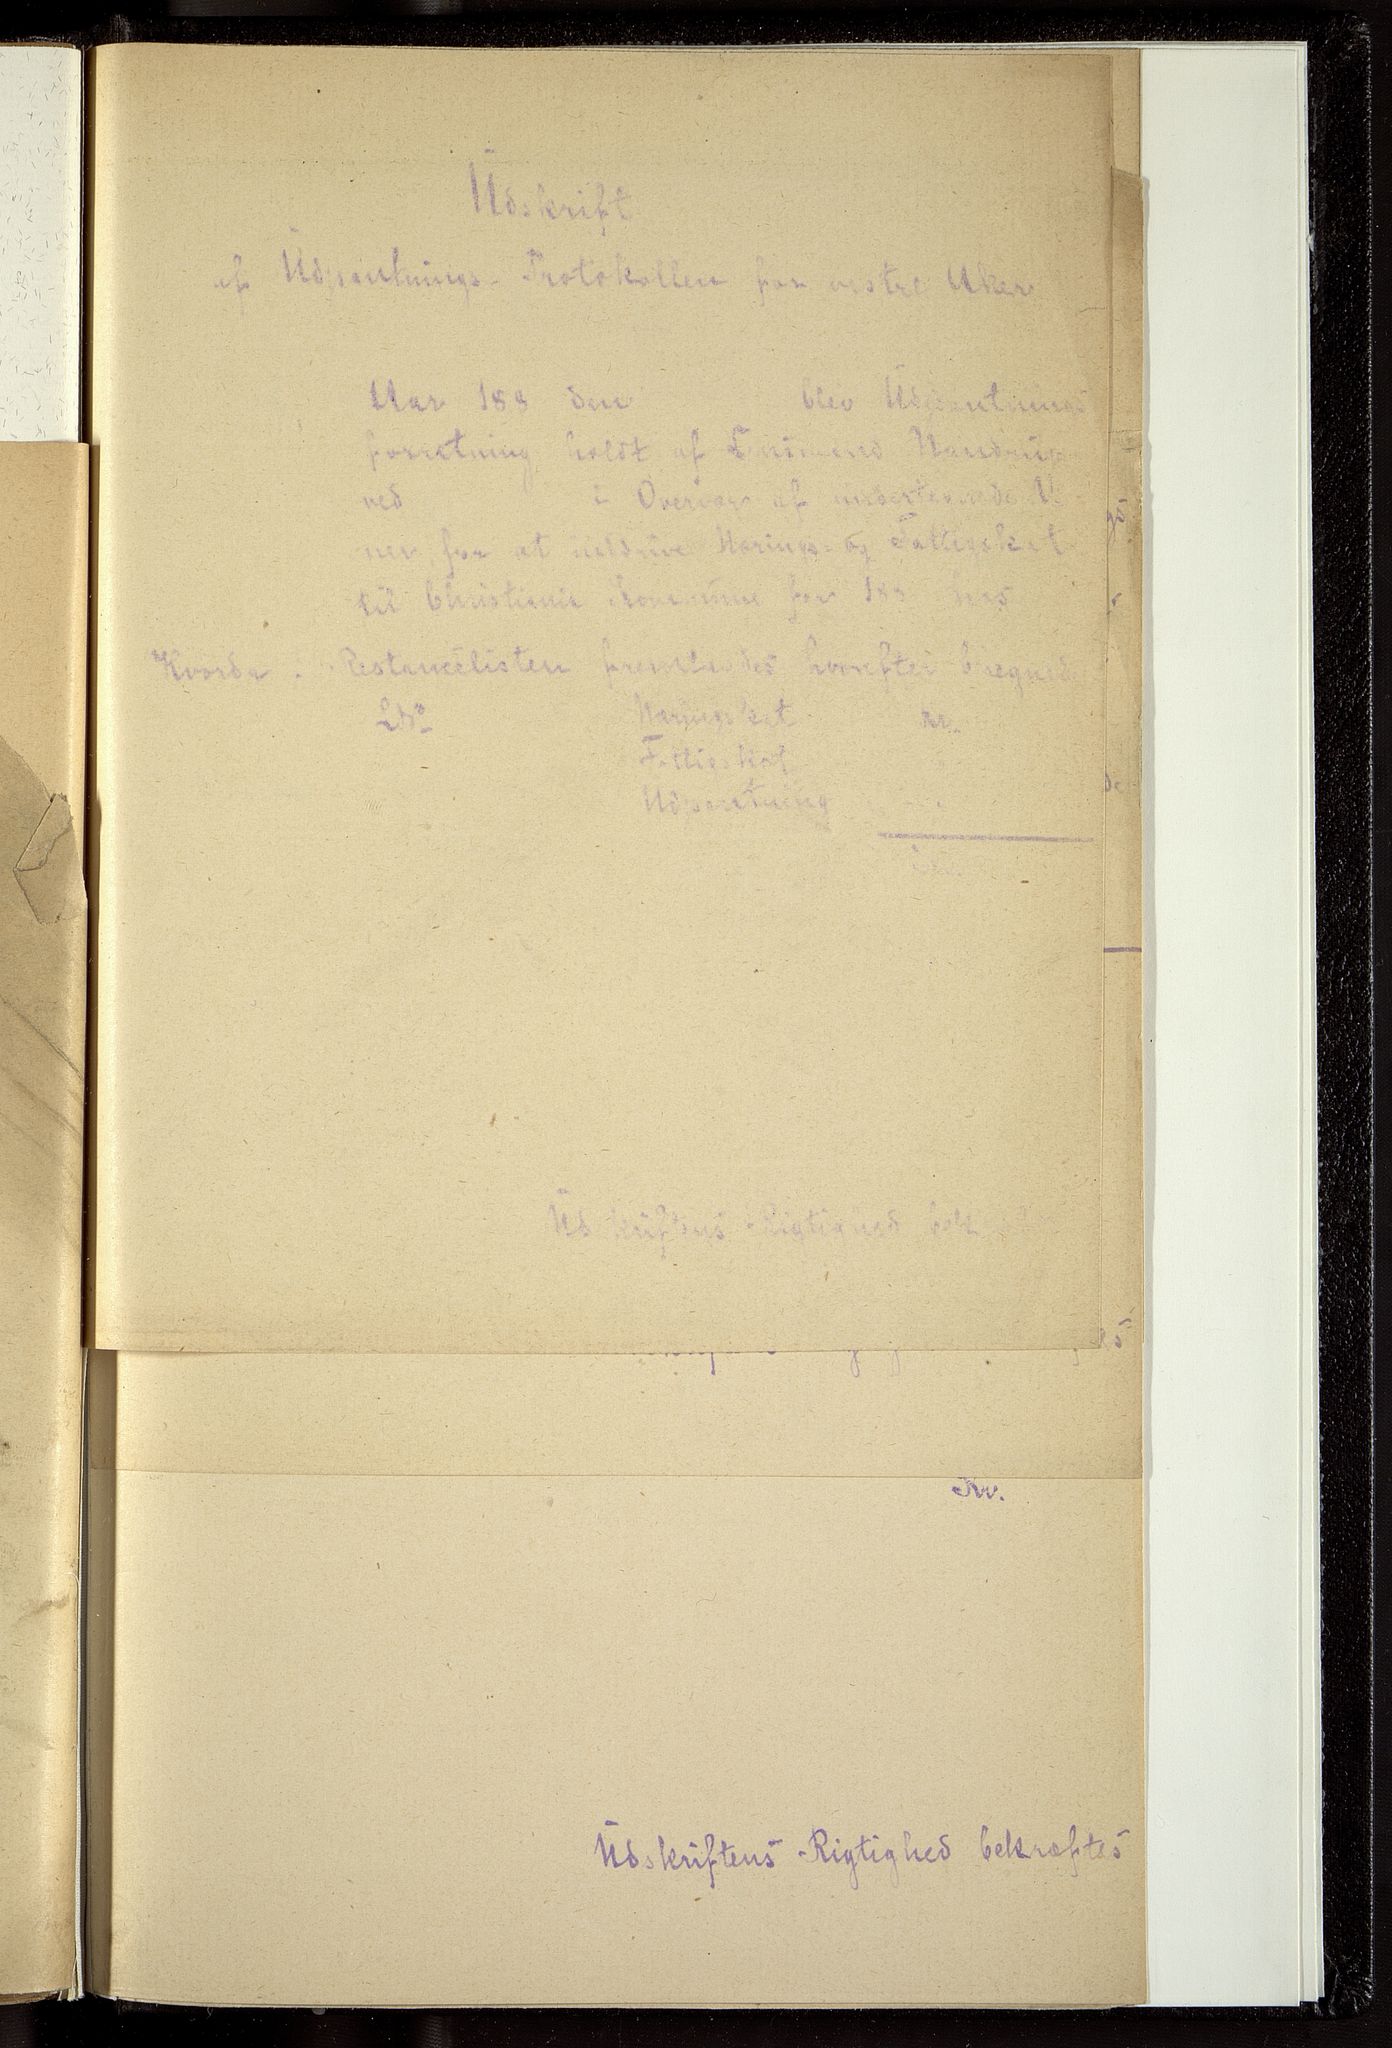 Udskrift
af Udpantnings-Protokollen for vestre Aker
Aar 188 den blev Udpantnings
forretning holdt af Lensmand
ved i Overvær af undertegnede
ner for at inddrive Nærings- og Fattigskat
til Christiania Kommune for 188 hos
Hvorda. Restancelisten fremlagdes hvorefter
Lds. Næringskat Kr.
Fattigskat
Udpantning
Udskriftens Rigtighed bek
Kr.
Udskriftens Rigtighed bekræftes